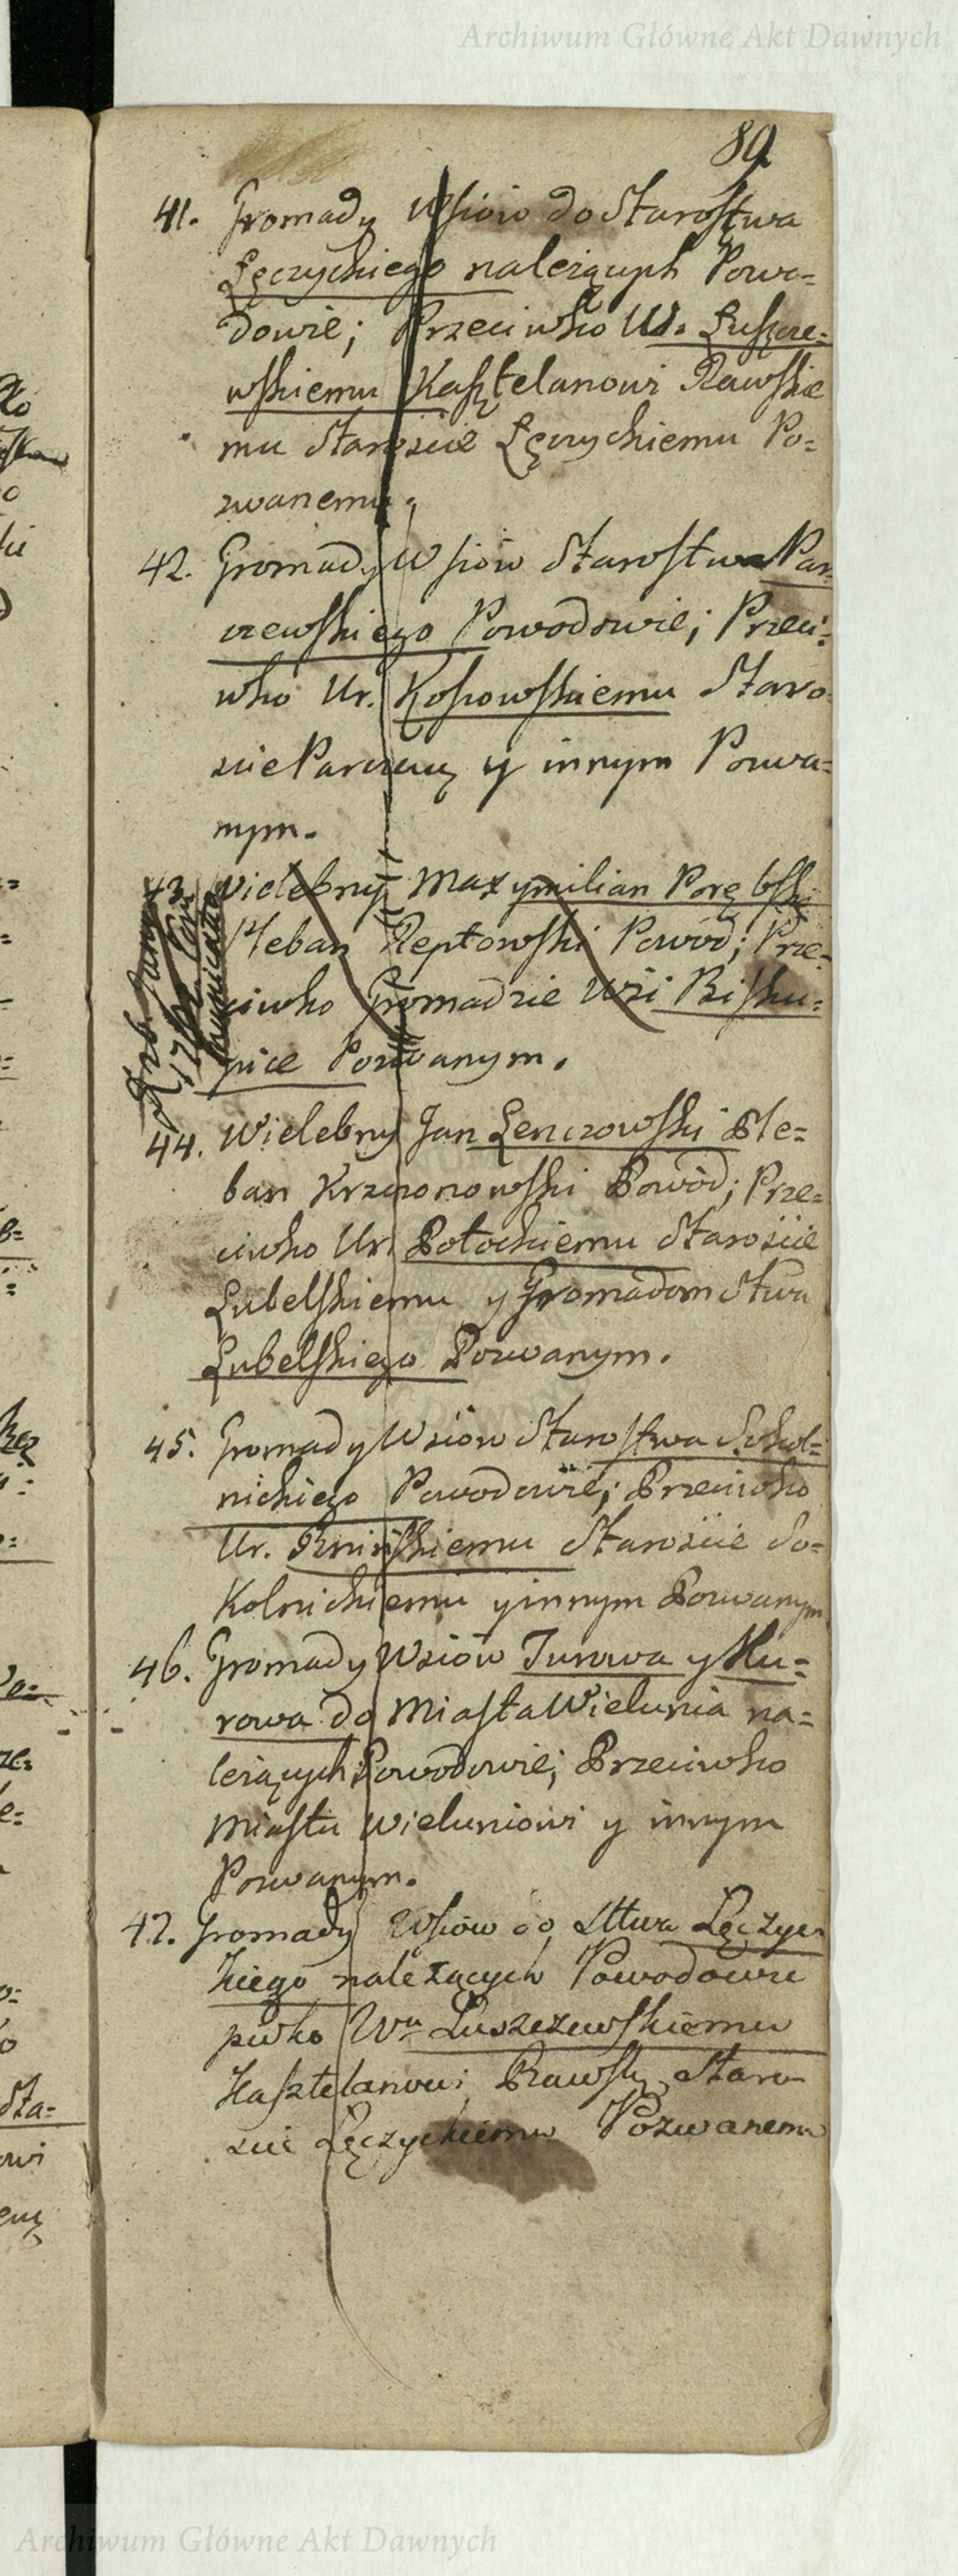 Archiwum Główne Akt Dawnych
89
41. Gromady Wsiów do Starostwa
Łęczyckiego należących Powo=
dowie; Przeciwko Ur. Łuszcze=
wskiemu Kasztelanowi Rawskie
mu Staroście Łęczyckiemu Po=
zwanemu.
42. Gromady Wsiów Starostwa Par
czewskiego Powodowie; Przeci=
wko Ur. Kossowskiemu Staro
scie Parczew: y innym Pozwa=
nym.
43. Wielebny Maxymilian Porębski
Pleban Reptowski Powód; Prze=
ciwko Gromadzie Wsi Bisku=
pice Pozwanym.
44. Wielebny Jan Lenczowski Ple=
ban Krzczonowski Powód; Prze=
ciwko Ur. Potockiemu Staroście
Lubelskiemu y Gromadom Stwa
Lubelskiego Pozwanym.
45. Gromady Wsiów Starostwa Sokol=
nickiego Powodowie; Przeciwko
Ur. Kmińskiemu Staroście So=
kolnickiemu y innym Pozwanym
46. Gromady Wsiów Turowa y Ku=
rowa do Miasta Wielunia na=
leżących Powodowie; Przeciwko
Miastu Wieluniowi y innym
Pozwanym.
47. Gromady Wsiów do Sttwa Łęczyc
kiego należących Powodowie
pwko Wu Łuszczewskiemu
Kasztelanowi Rawsk. Staro
scie Łęczyckiemu Pozwanemu
Archiwum Główne Akt Dawnych